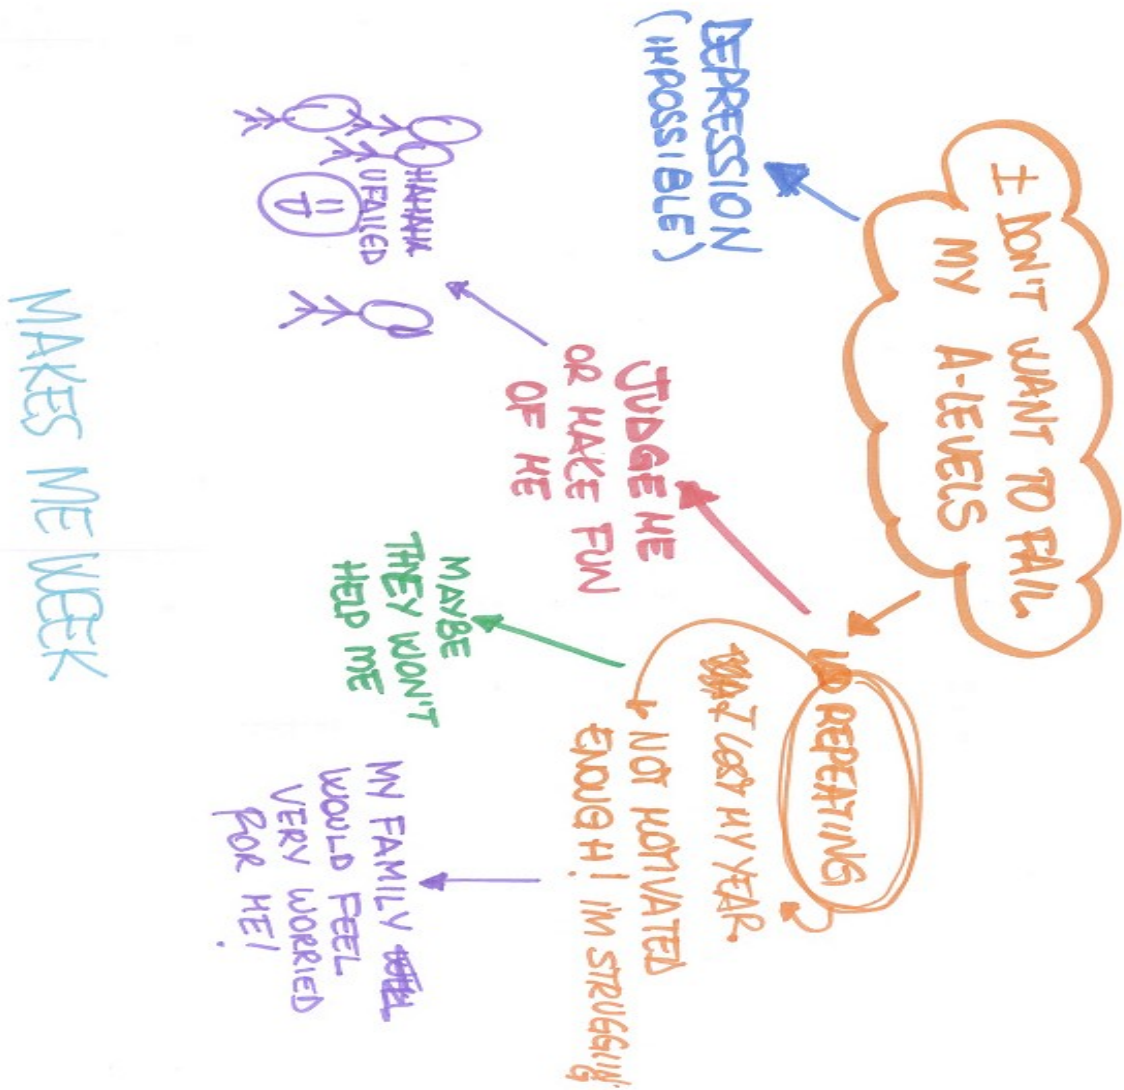 I DON'T WANT TO FAIL
MY A-LEVELS
DEPRESSION
(IMPOSSIBLE)
REPEATING
I LOST MY YEAR.
NOT MOTIVATED
ENOUGH! I'M STRUGGLING
JUDGE ME
OR MAKE FUN
OF ME
HAHAHA
U FAILED
MAYBE
THEY WON'T
HELP ME
MY FAMILY
WOULD FEEL
VERY WORRIED
FOR ME!
MAKES ME WEEK